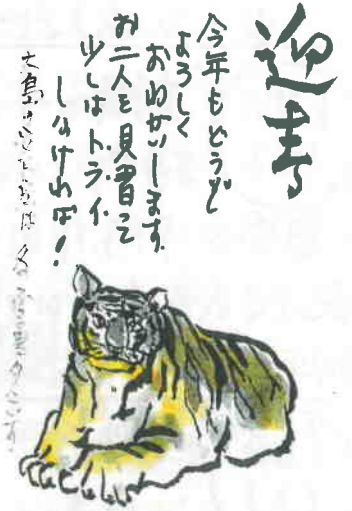 迎春
今年もどうぞ
よろしく
おねがいします。
お二人を見習って
少しはトライ
しなければ！